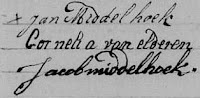 x Jan Middelhoek
Cornelia van elderen
Jacobmiddelhoek.